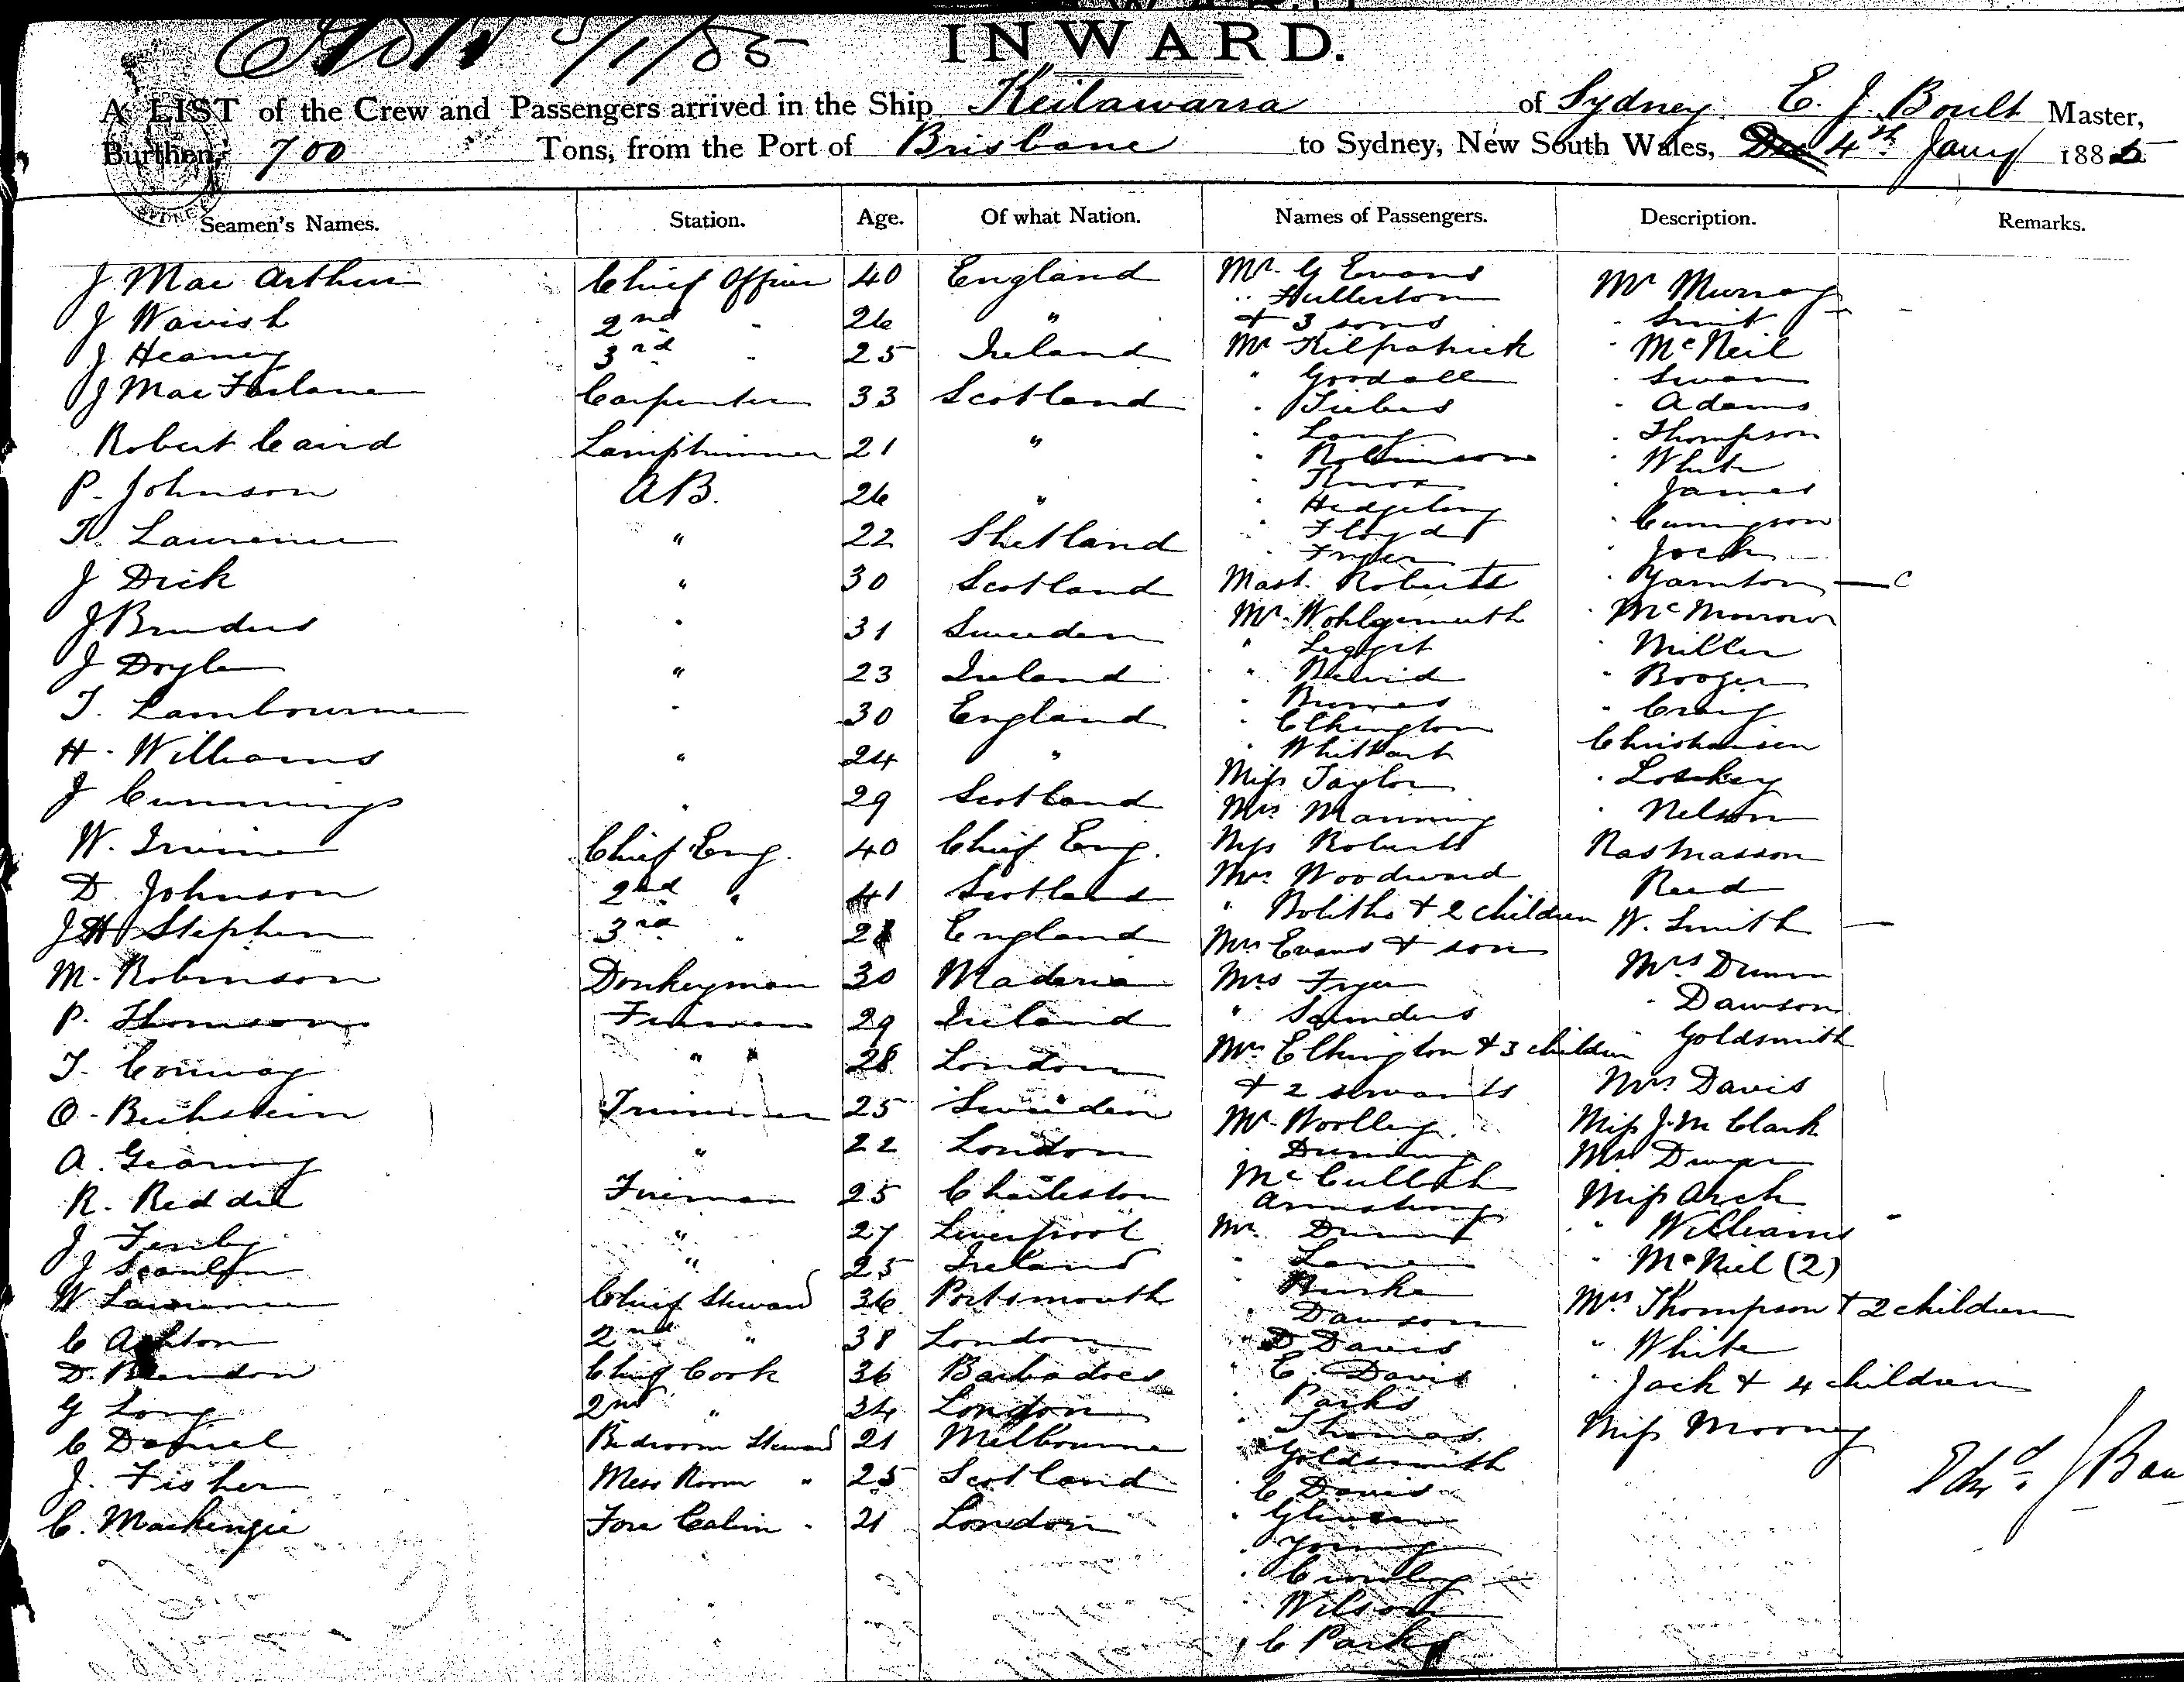 5/1/85
INWARD.
A LIST of the Crew and Passengers arrived in the Ship Keilawarra of Sydney E. J. Boult Master,
Burthen, 700 Tons, from the Port of Brisbane to Sydney, New South Wales, Dec 4th Jany 1885
SYDNEY
Seamen's Names. Station. Age. Of what Nation. Names of Passengers. Description. Remarks.
J Mac Arthur Chief Officer 40 England Mr. G Evans Mr Murray
" Fullerton
J Wavish 2nd " 26 " + 3 sons " Smit
J Heaney 3rd " 25 Ireland Mr Kilpatrick " McNeil
" Goodall " Swan
J Mac Farlane Carpenter 33 Scotland " " Adams
" Lang " Thompson
Robert Caird Lamptrimmer 21 " " Robinson " White
" Knox " James
P. Johnson A.B. 26 " " Hedgeling
" Floyd
Lawrence " 22 Shetland " Fryer " Jock
J Dick " 30 Scotland Mast. Roberts " Yarnton
J Bruders " 31 Sweden Mr. Wohlgemuth " McMorrow
" Leggit " Miller
J Doyle " 23 Ireland " " Booger
" Burnes
T. Lambourne " 30 England " Elkington " Craig
H. Williams " 24 " " Whittart Christiansen
Miss Taylor
J Cummings " 29 Scotland Mrs Manning " Nelson
W. Irvine Chief Eng. 40 Chief Eng. Miss Roberts Rasmasson
D Johnson 2nd " 41 Scotland Mrs Woodward Reed
" Bolitho + 2 children W. Smith
J H Stephen 3rd " 28 England Mrs Evans + son
M. Robinson Donkeyman 30 Maderia Mrs Fryer Mrs Dunn
P. Thomson Fireman 29 Ireland " Saunders " Dawson
T. Conway " 28 London Mrs Elkington + 3 children " Goldsmith
+ 2 servants Mrs Davis
O. Beihstein Trimmer 25 Sweden Mr. Woolley Miss J. M Clark
A. Gearing " 22 London " Dunning Mrs Dwyer
R. Reddel Fireman 25 Charleston McCulloch Miss Arch
Armstrong
J Fenby " 27 Liverpool Mr. " Williams
J Scanlon " 25 Ireland " Lane " McNeil (2)
W Lawrence Chief Steward 36 Portsmouth " Burke Mrs Thompson + 2 children
" Dawson
C Ashton 2nd " 38 London " D Davis " White
D. Brandon Chief Cook 36 Barbadoes " E. Davis
" Parks " Jack + 4 children
G Long 2nd " 34 London " Thomas
C Daniel Bedroom Steward 21 Melbourne " Goldsmith Miss Mooney
J. Fisher Mess Room " 25 Scotland " C Davis
C. Mackenzie Fore Cabin " 21 London
" Young
" Crowley
" Wilson
" C Parks
Edwd. J Bou